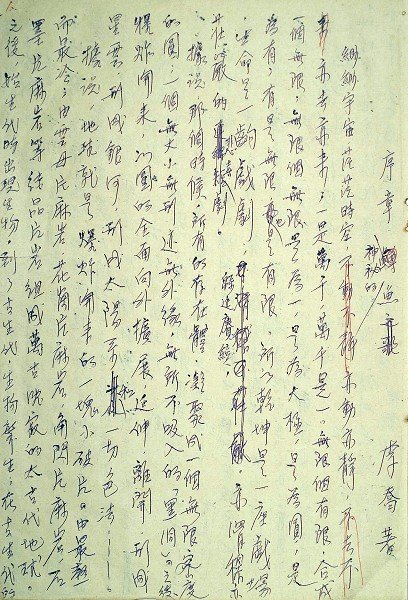 序章 神秘的魚 李喬著
緲緲宇宙，茫茫時空，不動不靜，亦動亦靜，不去不
來，亦去亦來；一是萬千，萬千是一，無限個有限，合成
一個無限，無限個無限是為一，是為太極，是為圓，是
為有，有是無限，是有限。所以乾坤是一座戲場
，生命是一齣戲劇
莊嚴的悲劇
據說那個時候，所有的存在體，凝聚成一個無限密度
的圓，一個無大小無形迹無外緣，無所不吸入的「黑洞」，之後
爆炸開來，以圓的全面向外擴展延伸離開，形成
星雲，形成銀河，形成太陽系和一切色法……。
據說，地球就是爆炸開來的一塊小破片，由最熱
而最冷；由雲母片麻岩、花崗片麻岩、角閃片麻岩、石
墨片麻岩等結晶片岩組成萬古洪寂的太古代地球。
之後，始生代時出現生物，到了古生代，生物繁生，在古生代的